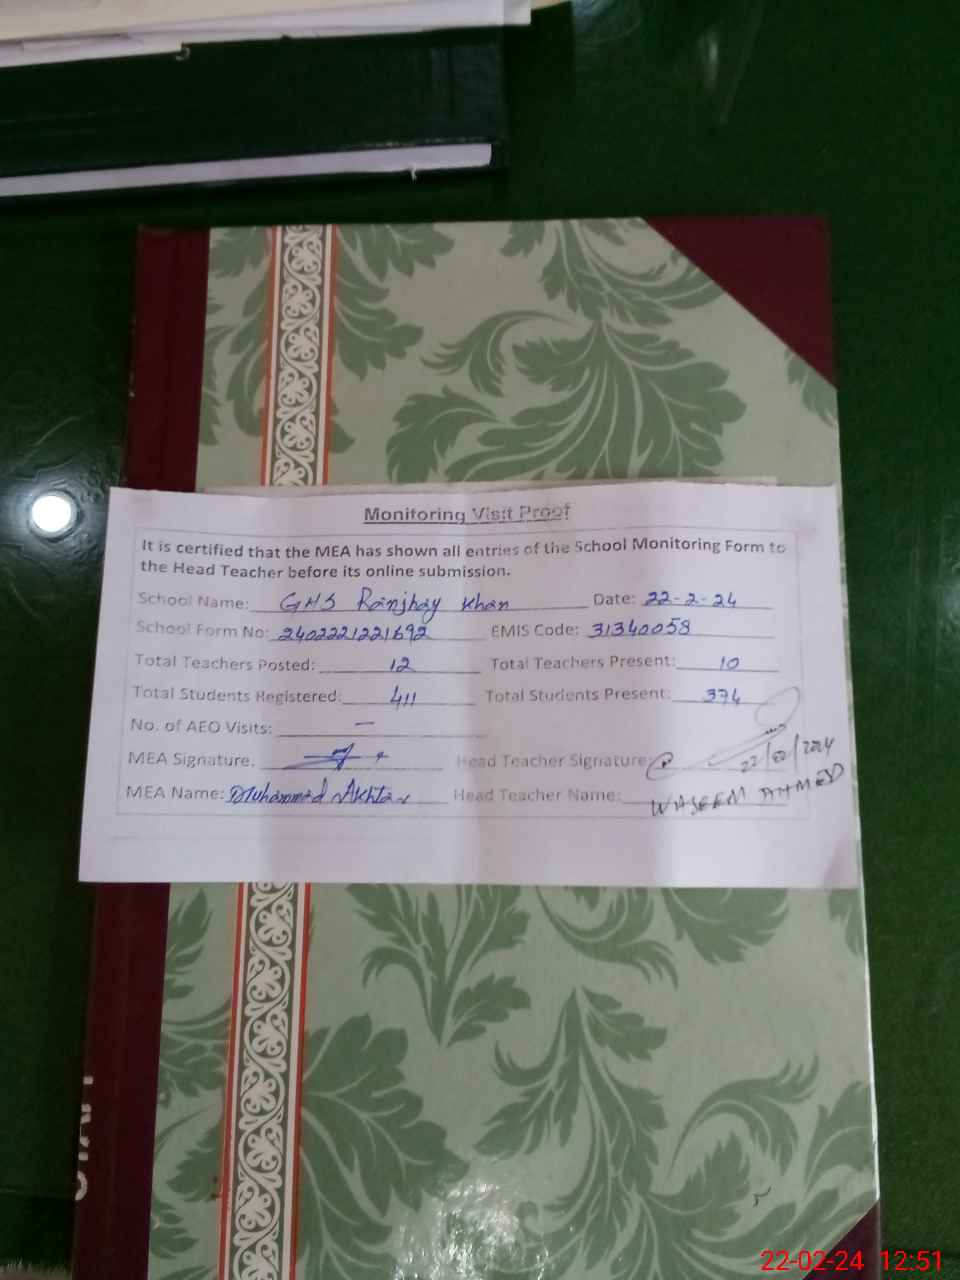 Monitoring Visit Proof
It is certified that the MEA has shown all entries of the School Monitoring Form to
the Head Teacher before its online submission.
School Name: GHS Ranjhay Khan Date: 22-2-24
School Form No: 2402221221692 EMIS Code: 31340058
Total Teachers Posted: 12 Total Teachers Present: 10
Total Students Registered: 411 Total Students Present: 374
No. of AEO Visits: —
MEA Signature: Head Teacher Signature: 22/02/2024
MEA Name: Muhammad Akhtar Head Teacher Name: WASEEM AHMED
22-02-24 12:51